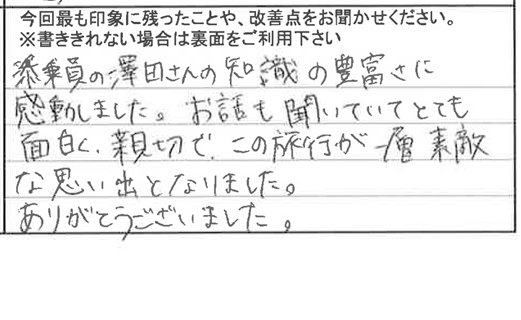 今回最も印象に残ったことや、改善点をお聞かせください。
※書ききれない場合は裏面をご利用下さい
添乗員の澤田さんの知識の豊富さに
感動しました。お話も聞いていてとても
面白く、親切で、この旅行が一層素敵
な思い出となりました。
ありがとうございました。